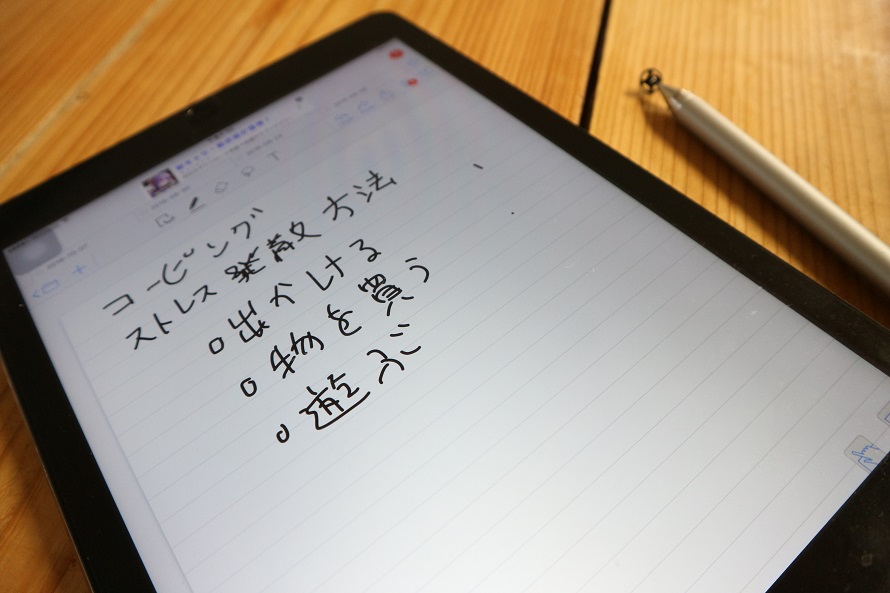 コーピング
ストレス発散方法
o出かける
o物を買う
o遊ぶ